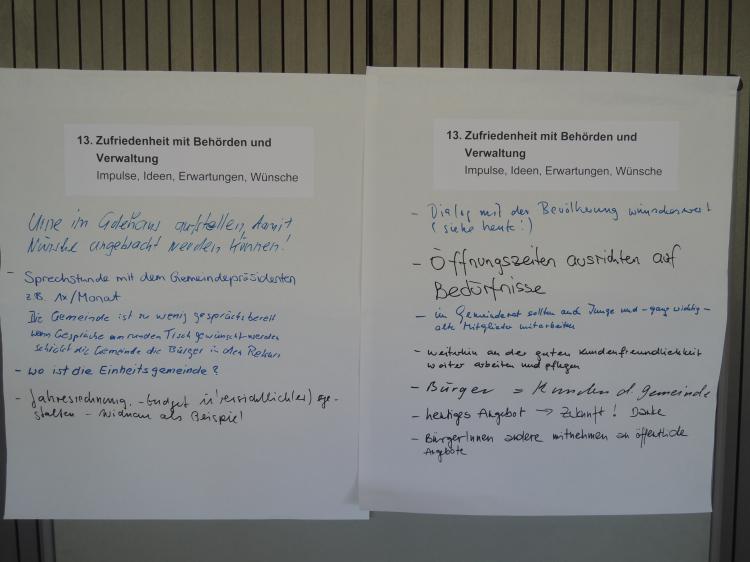 13. Zufriedenheit mit Behörden und
Verwaltung
Impulse, Ideen, Erwartungen, Wünsche
Urne im aufstellen, damit
Wünsche angebracht werden können!
- Sprechstunde mit dem Gemeindepräsidenten
z.B. 1x/Monat
Die Gemeinde ist zu wenig gesprächsbereit
wenn Gespräche am runden Tisch gewünscht werden
schickt die Gemeinde die Bürger in den Rekurs
- wo ist die Einheitsgemeinde?
- Jahresrechnung, -budget ge-
stalten - als Beispiel
13. Zufriedenheit mit Behörden und
Verwaltung
Impulse, Ideen, Erwartungen, Wünsche
- Dialog mit der Bevölkerung wünschenswert
(siehe heute!)
- Öffnungszeiten ausrichten auf
Bedürfnisse
- im Gemeinderat sollten auch Junge und - ganz wichtig -
alte Mitglieder mitarbeiten
- weiterhin an der guten Kundenfreundlichkeit
weiter arbeiten und pflegen
- Bürger = Kunden d. Gemeinde
- heutiges Angebot → Zukunft! Danke
- BürgerInnen andere mitnehmen an öffentliche
Angebote